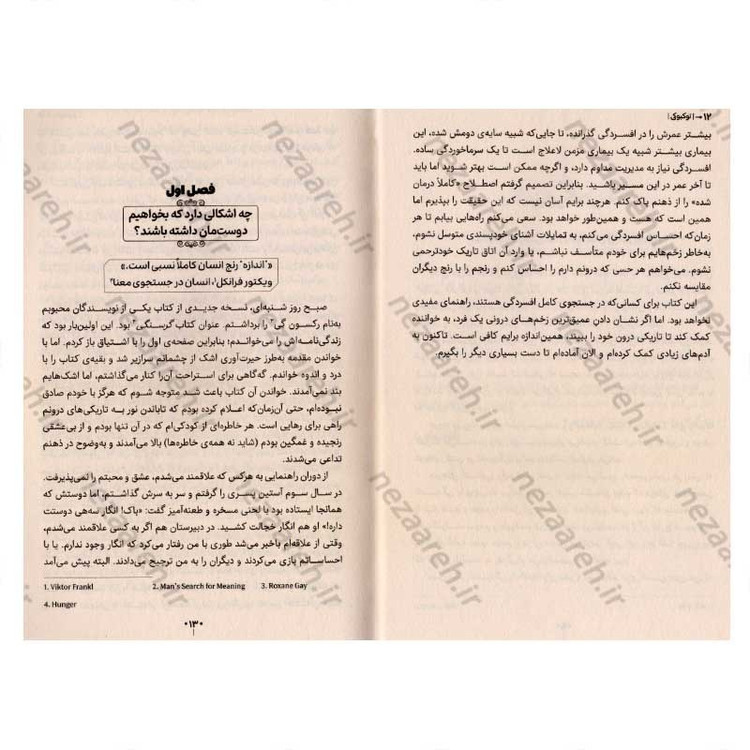 ۱۲ → | توکیوکی |
بیشتر عمرش را در افسردگی گذرانده، تا جایی‌که شبیه سایه‌ی دومش شده، این
بیماری بیشتر شبیه یک بیماری مزمن لاعلاج است تا یک سرماخوردگی ساده.
افسردگی نیاز به مدیریت مداوم دارد، و اگرچه ممکن است بهتر شوید اما باید
تا آخر عمر در این مسیر باشید. بنابراین تصمیم گرفتم اصطلاح «کاملاً درمان
شده» را از ذهنم پاک کنم. هرچند برایم آسان نیست که این حقیقت را بپذیرم اما
همین است که هست و همین‌طور خواهد بود. سعی می‌کنم راه‌هایی بیابم تا هر
زمان‌که احساس افسردگی می‌کنم، به تمایلات آشنای خودپسندی متوسل نشوم.
به‌خاطر زخم‌هایم برای خودم متأسف نباشم، یا وارد آن اتاق تاریک خودترحمی
نشوم. می‌خواهم هر حسی که درونم دارم را احساس کنم و رنجم را با رنج دیگران
مقایسه نکنم.
این کتاب برای کسانی‌که در جستجوی کامل افسردگی هستند، راهنمای مفیدی
نخواهد بود. اما اگر نشان دادنِ عمیق‌ترین زخم‌های درونی یک فرد، به خواننده
کمک کند تا تاریکی درون خود را ببیند، همین‌اندازه برایم کافی است. تاکنون به
آدم‌های زیادی کمک کرده‌ام و الان آماده‌ام تا دست بسیاری دیگر را بگیرم.
فصل اول
چه اشکالی دارد که بخواهیم
دوست‌مان داشته باشند؟
«"اندازه" رنج انسان کاملاً نسبی است.»
ویکتور فرانکل۱، انسان در جستجوی معنا۲
صبح روز شنبه‌ای، نسخه جدیدی از کتاب یکی از نویسندگان محبوبم
به‌نام رکسون گی۳ را برداشتم. عنوان کتاب گرسنگی۴ بود. این اولین‌بار بود که
زندگی‌نامه‌اش را می‌خواندم؛ بنابراین صفحه‌ی اول را با اشتیاق باز کردم. اما با
خواندن مقدمه به‌طرز حیرت‌آوری اشک از چشمانم سرازیر شد و بقیه‌ی کتاب را با
درد و اندوه خواندم. گه‌گاهی برای استراحت آن‌را کنار می‌گذاشتم، اما اشک‌هایم
بند نمی‌آمدند. خواندن آن کتاب باعث شد متوجه شوم که هرگز با خودم صادق
نبوده‌ام، حتی آن‌زمان‌که اعلام کرده بودم که تاباندن نور به تاریکی‌های درونم
راهی برای رهایی است. هر خاطره‌ای از کودکی‌ام که در آن تنها بودم و از بی‌عشقی
رنجیده و غمگین بودم (شاید نه همه‌ی خاطره‌ها) بالا می‌آمدند و به‌وضوح در ذهنم
تداعی می‌شدند.
از دوران راهنمایی به هرکس که علاقمند می‌شدم، عشق و محبتم را نمی‌پذیرفت.
در سال سوم آستین پسری را گرفتم و سر به سرش گذاشتم، اما دوستش که
همانجا ایستاده بود با لحنی مسخره و طعنه‌آمیز گفت: «باک! انگار سه‌هی دوستت
داره!» او هم انگار خجالت کشید. در دبیرستان هم اگر به کسی علاقمند می‌شدم،
وقتی از علاقه‌ام باخبر می‌شد طوری با من رفتار می‌کرد که انگار وجود ندارم. یا با
احساساتم بازی می‌کردند و دیگران را به من ترجیح می‌دادند. البته پیش می‌آمد
1. Viktor Frankl 2. Man's Search for Meaning 3. Roxane Gay
4. Hunger
۱۳۰
nezaareh.ir